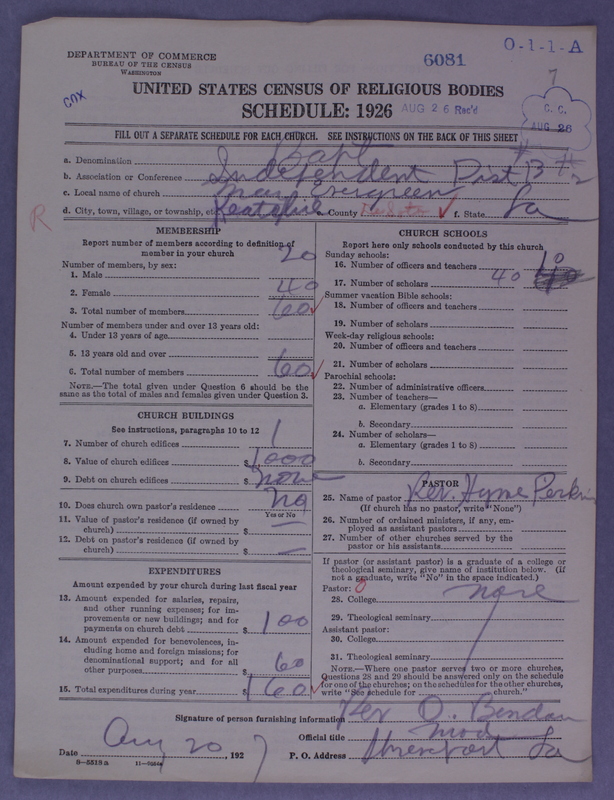 O-1-1-A
DEPARTMENT OF COMMERCE
BUREAU OF THE CENSUS
WASHINGTON
6081
7
UNITED STATES CENSUS OF RELIGIOUS BODIES
SCHEDULE: 1926
AUG 26 Rec'd
C. C.
AUG 26
FILL OUT A SEPARATE SCHEDULE FOR EACH CHURCH. SEE INSTRUCTIONS ON THE BACK OF THIS SHEET
a. Denomination Bapt
b. Association or Conference Independent Dist B #2
c. Local name of church Evergreen
d. City, town, village, or township, etc. e. County f. State La
R
MEMBERSHIP
Report number of members according to definition of member in your church
Number of members, by sex:
1. Male 20
2. Female 40
3. Total number of members 60
Number of members under and over 13 years old:
4. Under 13 years of age
5. 13 years old and over
6. Total number of members 60
NOTE.—The total given under Question 6 should be the same as the total of males and females given under Question 3.
CHURCH BUILDINGS
See instructions, paragraphs 10 to 12
7. Number of church edifices 1
8. Value of church edifices $ 1000
9. Debt on church edifices $ none
10. Does church own pastor's residence? no
Yes or No
11. Value of pastor's residence (if owned by church) $ —
12. Debt on pastor's residence (if owned by church) $ —
EXPENDITURES
Amount expended by your church during last fiscal year
13. Amount expended for salaries, repairs, and other running expenses; for improvements or new buildings; and for payments on church debt $ 100
14. Amount expended for benevolences, including home and foreign missions; for denominational support; and for all other purposes $ 60
15. Total expenditures during year $ 160
CHURCH SCHOOLS
Report here only schools conducted by this church
Sunday schools:
16. Number of officers and teachers 10
17. Number of scholars 40
Summer vacation Bible schools:
18. Number of officers and teachers
19. Number of scholars
Week-day religious schools:
20. Number of officers and teachers
21. Number of scholars
Parochial schools:
22. Number of administrative officers
23. Number of teachers—
a. Elementary (grades 1 to 8)
b. Secondary
24. Number of scholars—
a. Elementary (grades 1 to 8)
b. Secondary
PASTOR
25. Name of pastor Rev. Hyme Perkins
(If church has no pastor, write "None")
26. Number of ordained ministers, if any, employed as assistant pastors
27. Number of other churches served by the pastor or his assistants
If pastor (or assistant pastor) is a graduate of a college or theological seminary, give name of institution below. (If not a graduate, write "No" in the space indicated.)
Pastor: 0
28. College none
29. Theological seminary
Assistant pastor:
30. College
31. Theological seminary
NOTE.—Where one pastor serves two or more churches, Questions 28 and 29 should be answered only on the schedule for one of the churches; on the schedules for the other churches, write "See schedule for church."
Signature of person furnishing information Rev O.
Official title Mod
Date Aug 20, 1927 P. O. Address Shreveport La
8-5518 a